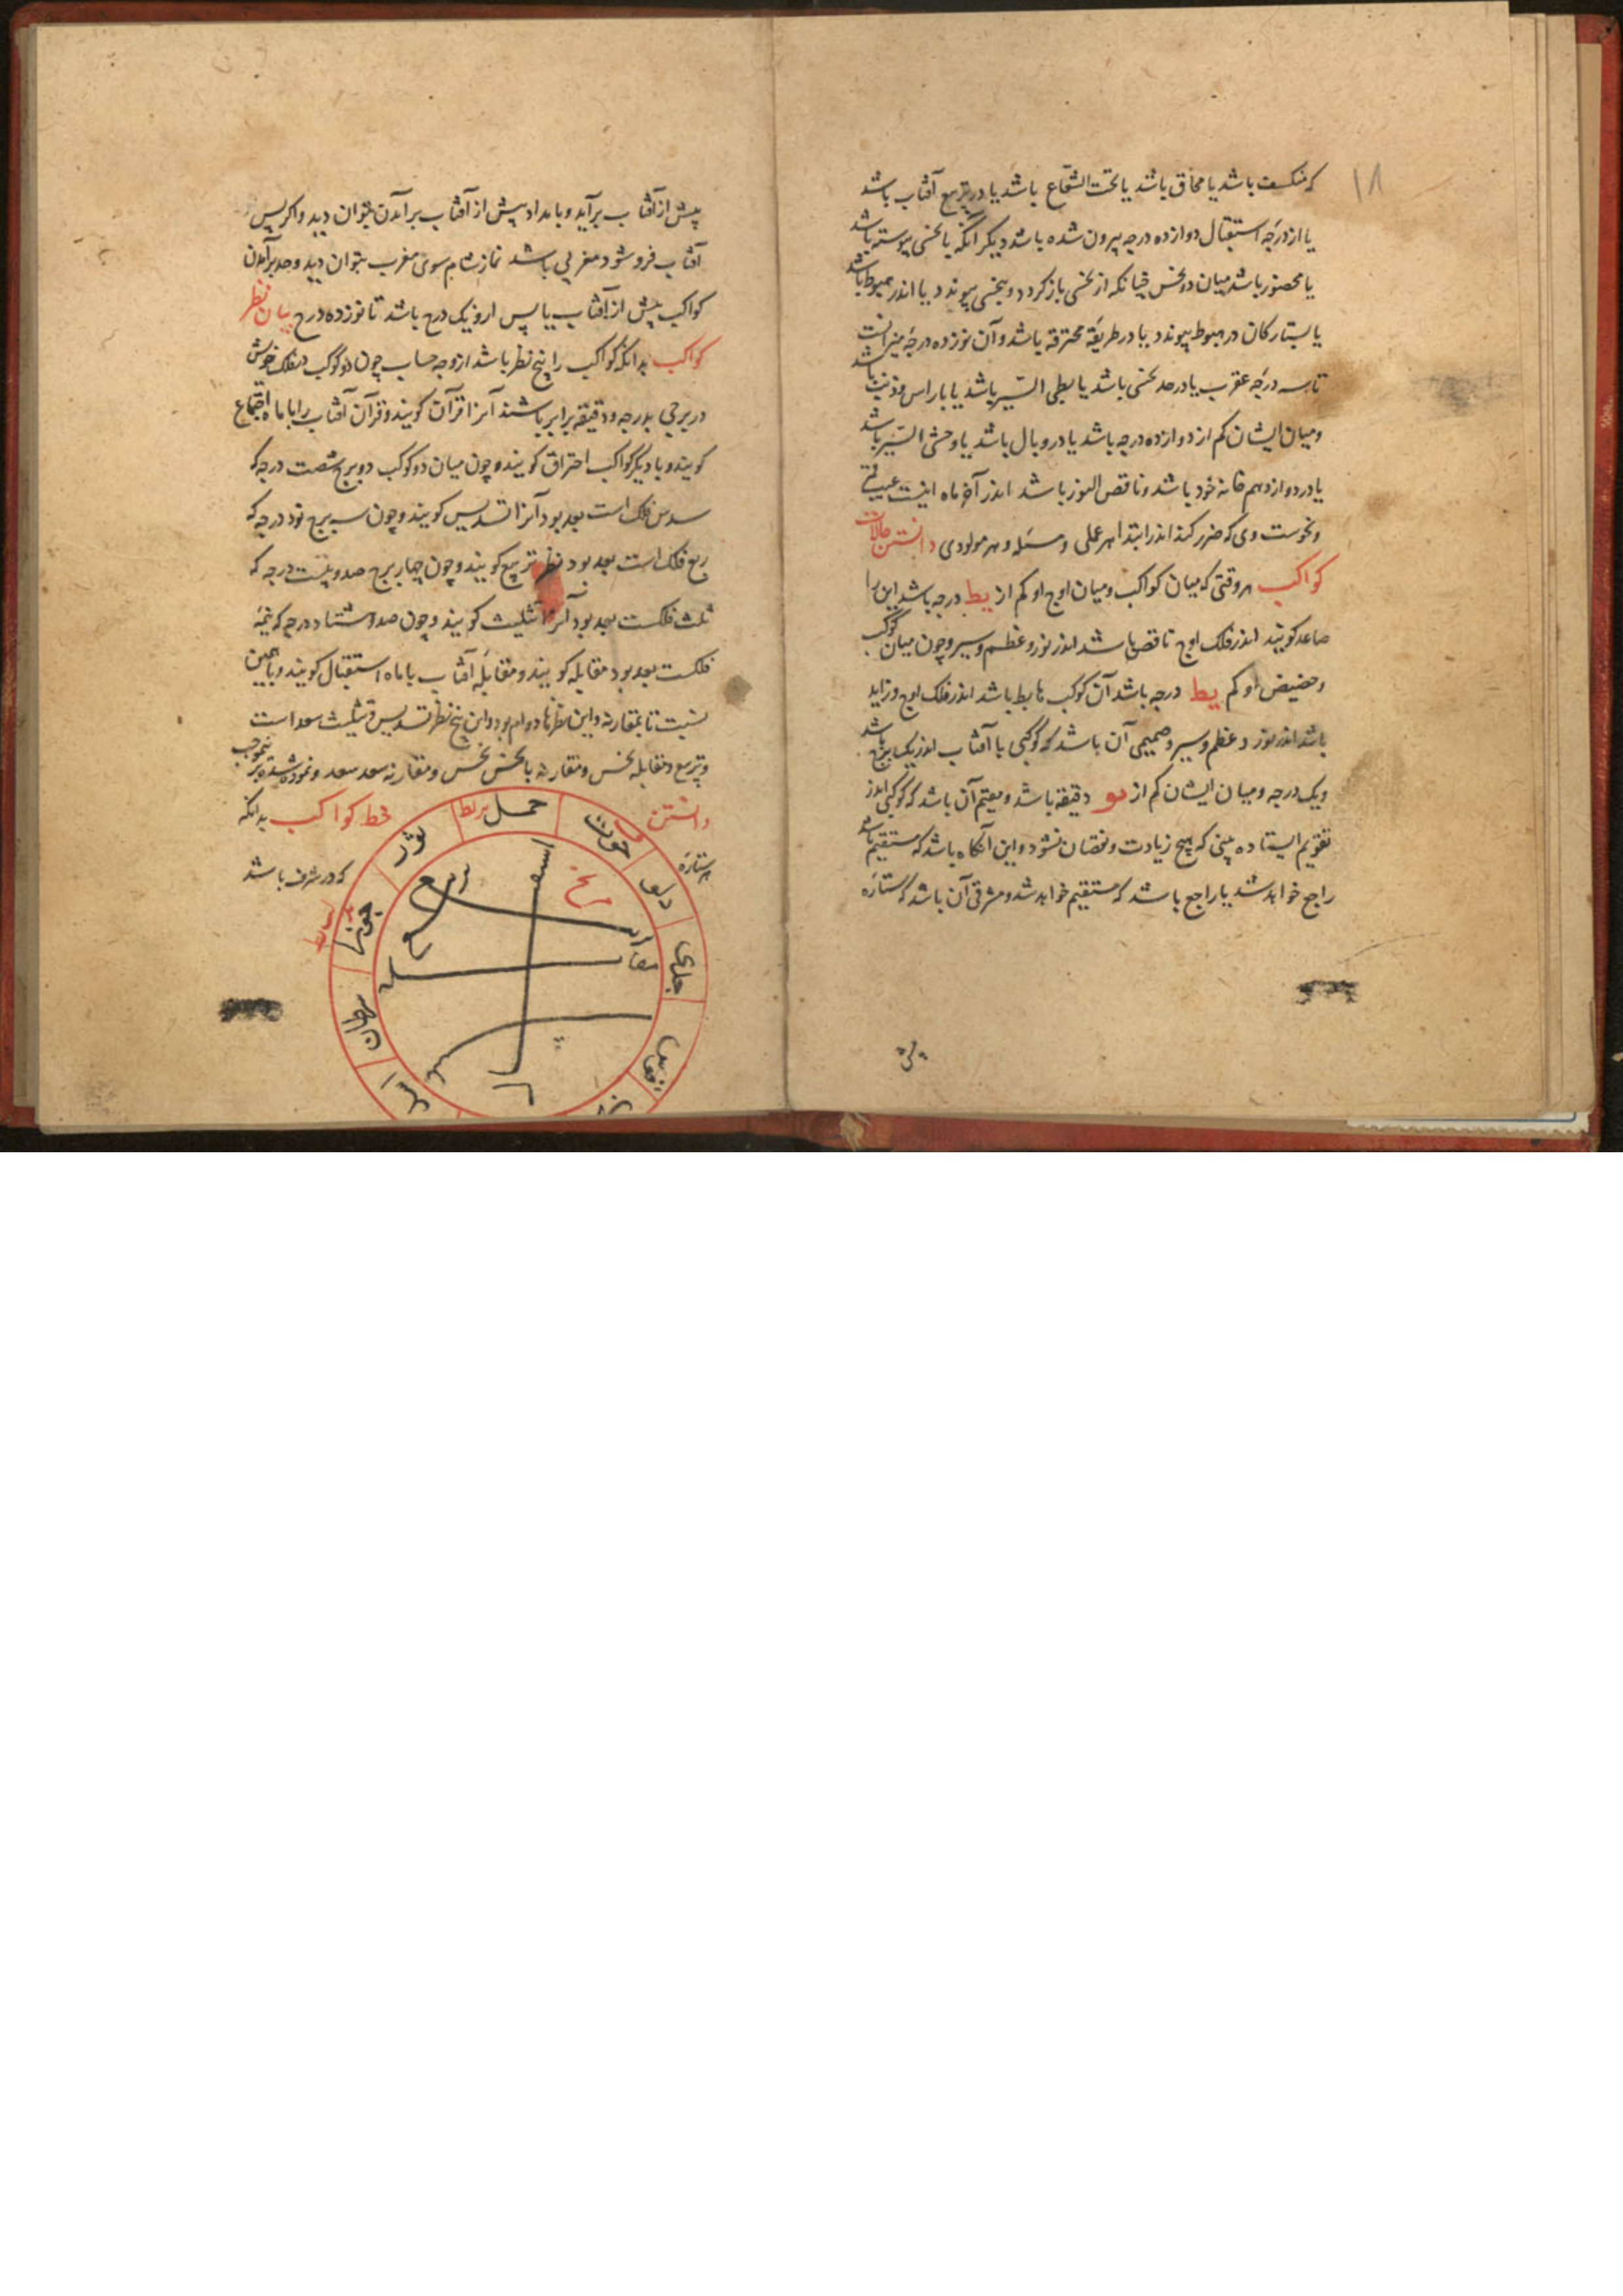 ۱۸
که منکسف باشد یا محاق باشد یا تحت الشعاع باشد یا در تربیع آفتاب باشد
یا از درجه استقبال دوازده درجه بیرون شده باشد دیگر آنکه با نحسی پیوسته باشد
یا محصور باشد میان دو نحس چنانکه از نحسی باز کردد و بنحسی پیوندد یا اندر هبوط باشد
یا بستارکان در هبوط پیوندد یا در طریقه محترقه باشد و آن نوزده درجه میزانست
تا سه درجه عقرب یا در حد نحسی باشد یا بطی السیر باشد یا با راس و ذنب باشد
و میان ایشان کم از دوازده درجه باشد یا در وبال باشد یا وحشی السیر باشد
یا در دوازدهم خانه خود باشد و ناقص النور باشد اندر آخر ماه اینست عیب قمر
و نحوست وی که ضرر کند اندر ابتدا هر عملی و مسئله و هر مولودی دانستن حالات
کواکب هر وقتی که میان کواکب و میان اوج او کم از یط درجه باشد این را
صاعد کویند اندر فلک اوج ناقص باشد اندر نور و عظم و سیر و چون میان کوکب
و حضیض او کم یط درجه باشد آن کوکب هابط باشد اندر فلک اوج و زاید
باشد اندر نور و عظم و سیر و صمیمی آن باشد که کوکبی با آفتاب اندر یک برج باشد
و یک درجه و میان ایشان کم از یو دقیقه باشد و مقیم آن باشد که کوکبی اندر
تقویم ایستاده بینی که هیچ زیادت و نقصان نشود و این آنکاه باشد که مستقیم باشد
راجع خواهد شد یا راجع باشد که مستقیم خواهد شد و مشرقی آن باشد که ستاره
پیش
پیش از آفتاب برآید و بامداد پیش از آفتاب برآمدن بتوان دید و اکر پس
آفتاب فرو شود مغربی باشد نماز شام سوی مغرب بتوان دید و حد برآمدن
کواکب پیش از آفتاب یا پس ازو یک درج باشد تا نوزده درج بیان نظر
کواکب بدانکه کواکب را پنج نظر باشد از وجه حساب چون دو کوکب در فلک خویش
در برجی بدرجه و دقیقه برابر باشند آنرا قرآن کویند و قرآن آفتاب را با ماه اجتماع
کویند و با دیکر کواکب احتراق کویند و چون میان دو کوکب دو برج شصت درجه که
سدس فلک است بعد بود آنرا تسدیس کویند و چون سه برج نود درجه که
ربع فلک است بعد بود نظر تربیع کویند و چون چهار برج صد و بیست درجه که
ثلث فلکست بعد بود آنرا تثلیث کویند و چون صد و هشتاد درج که نیمه
فلکست بعد بود مقابله کویند و مقابله آفتاب با ماه استقبال کویند و با همین
نسبت تا بمقارنه و این نظرها دوام بود و این پنج نظر تسدیس و تثلیث سعد است
و تربیع و مقابله نحس و مقارنه با نحس نحس و مقارنه سعد سعد و نموده شده بر
دانستن خط کواکب بدانکه
هر ستاره که در شرف باشد
حمل
حوت
دلو
جدی
قوس
ثور
جوزا
سرطان
اسد
مریخ